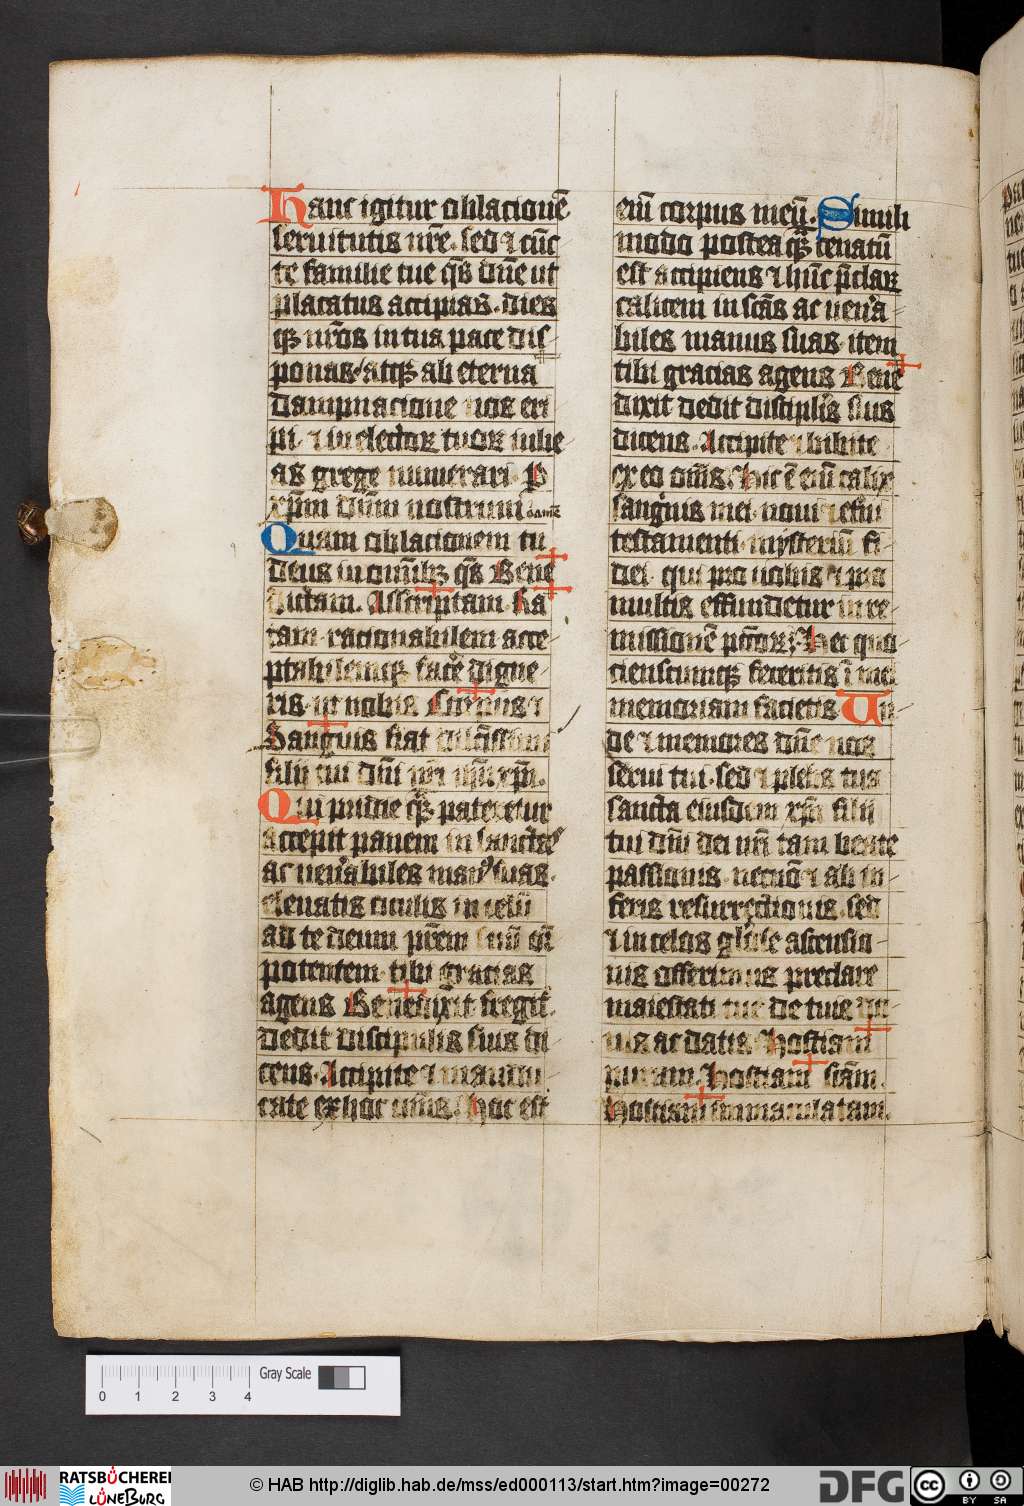 Hanc igitur oblacionē
seruitutis nr̄e. sed ⁊ cūc
te familie tue qs̄ dn̄e ut
placatus accipias. dies
qꝫ nr̄os in tua pace dis
ponas / atqꝫ ab eterna
dampnacione nos eri
pi. ⁊ in electoꝝ tuoꝝ iubē
as grege numerari. P
xp̄m dn̄m nostrum amē
Quam oblacionem tu
deus in omībꝫ qs̄ Bene
dictam. Asscriptam. Ra
tam. racionabilem acce
ptabilemqꝫ facē digne
ris. ut nobis Corpus ⁊
Sanguis fiat dilc̄issimi
filij tui dn̄i nr̄i ihū xp̄i.
Qui pridie qꝫ pateretur
accepit panem in sanctas
ac uen̄abiles manꝰ suas.
eleuatis oculis in celū
ad te deum pr̄em suū om̄i
potentem. tibi gracias
agens Benedixit fregit.
Dedit discipulis suis di
cens. Accipite ⁊ mandu
cate ex hoc om̄s. Hoc est
eni̅ corpus meū. Simili
modo postea qꝫ cenatū
est accipiens ⁊ hūc p̄claꝝ
calicem in scās ac uen̄a
biles manus suas. item
tibi gracias agens Bene
dixit dedit discipulis suis
dicens. Accipite ⁊ bibite
ex eo om̄s. Hic ē eni̅ calix
sanguis mei. noui ⁊ et̄ni
testamenti. mysteriū fi
dei. qui pro uobis ⁊ pro
multis effundetur in re
missionē pc̄toꝝ. Hec quo
cienscumqꝫ feceritis ī mei
memoriam facietis Un
de ⁊ memores dn̄e nos
serui tui. sed ⁊ plebs tua
sancta eiusdem xp̄i filij
tui dn̄i dei nr̄i tam beate
passionis. necnō ⁊ ab in
feris resurrectionis. sed
⁊ in celos gl̄iose ascensio
nis offerimus preclare
maiestati tue de tuis do
nis ac datis. Hostiam
puram. Hostiam scām.
Hostiam immaculatam.
Gray Scale
0 1 2 3 4
RATSBÜCHEREI
LÜNEBURG
© HAB http://diglib.hab.de/mss/ed000113/start.htm?image=00272
DFG
cc BY SA